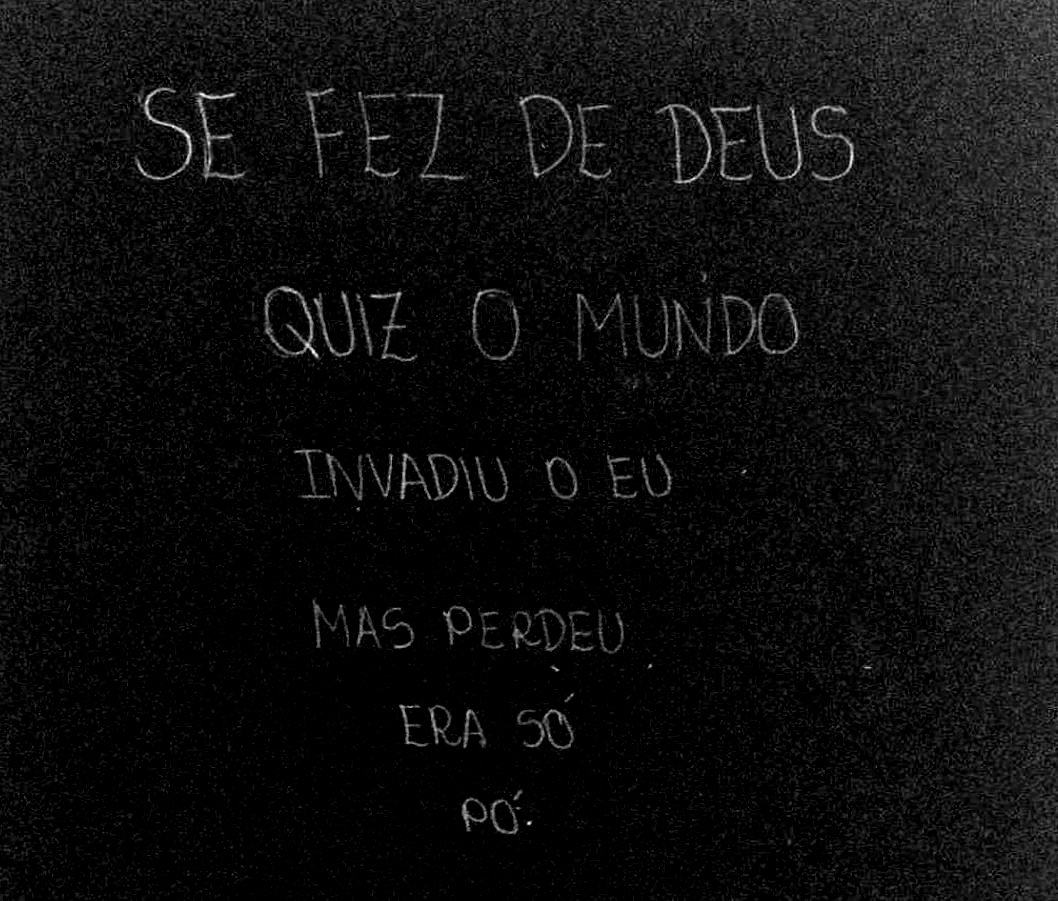 SE FEZ DE DEUS
QUIZ O MUNDO
INVADIU O EU
MAS PERDEU
ERA SÓ
PÓ.